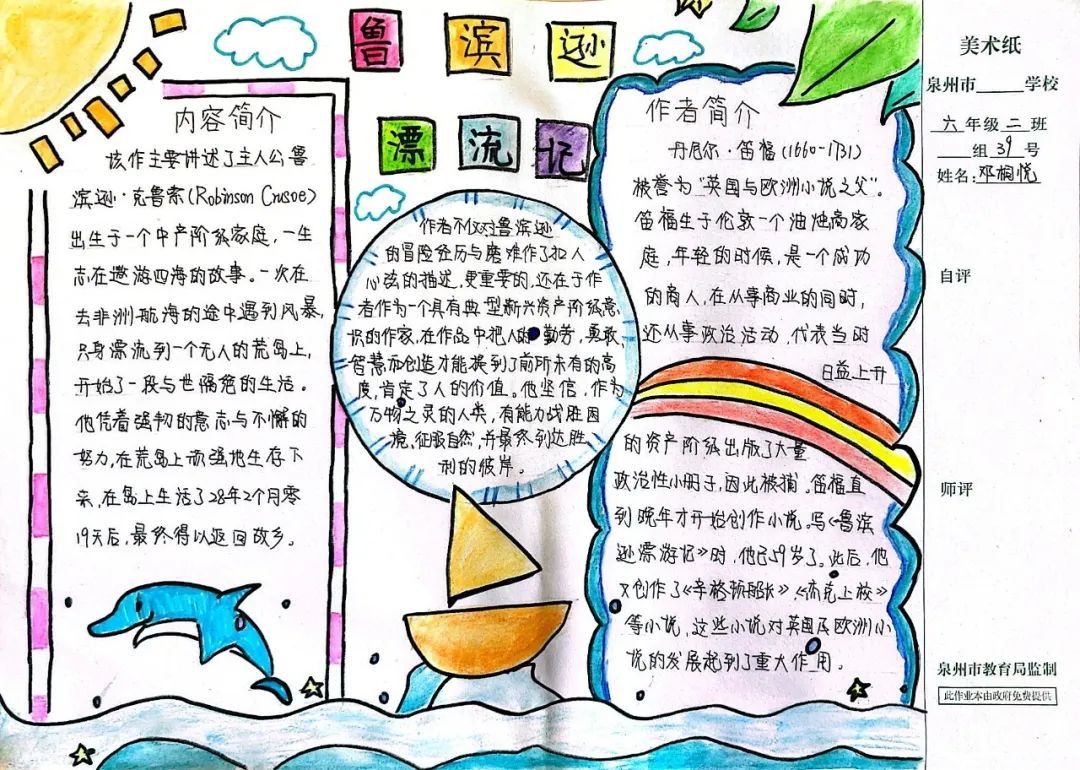 鲁滨逊
漂流记
内容简介
该作主要讲述了主人公鲁
滨逊·克鲁索(Robinson Crusoe)
出生于一个中产阶级家庭,一生
志在遨游四海的故事。一次在
去非洲航海的途中遇到风暴,
只身漂流到一个无人的荒岛上,
开始了一段与世隔绝的生活。
他凭着强韧的意志与不懈的
努力,在荒岛上顽强地生存下
来,在岛上生活了28年2个月零
19天后,最终得以返回故乡。
作者不仅对鲁滨逊
的冒险经历与磨难作了扣人
心弦的描述,更重要的,还在于作
者作为一个具有典型新兴资产阶级意
识的作家,在作品中把人的勤劳,勇敢,
智慧和创造才能提到了前所未有的高
度,肯定了人的价值。他坚信,作为
万物之灵的人类,有能力战胜困
境,征服自然,并最终到达胜
利的彼岸。
作者简介
丹尼尔·笛福(1660-1731)
被誉为“英国与欧洲小说之父”。
笛福生于伦敦一个油烛商家
庭,年轻的时候,是一个成功
的商人,在从事商业的同时,
还从事政治活动,代表当时
日益上升
的资产阶级出版了大量
政治性小册子,因此被捕。笛福直
到晚年才开始创作小说。写《鲁滨
逊漂游记》时,他已59岁了。此后,他
又创作了《辛格顿船长》《杰克上校》
等小说,这些小说对英国及欧洲小
说的发展起到了重大作用。
美术纸
泉州市______学校
六年级二班
____组39号
姓名:邓桐悦
自评
师评
泉州市教育局监制
此作业本由政府免费提供